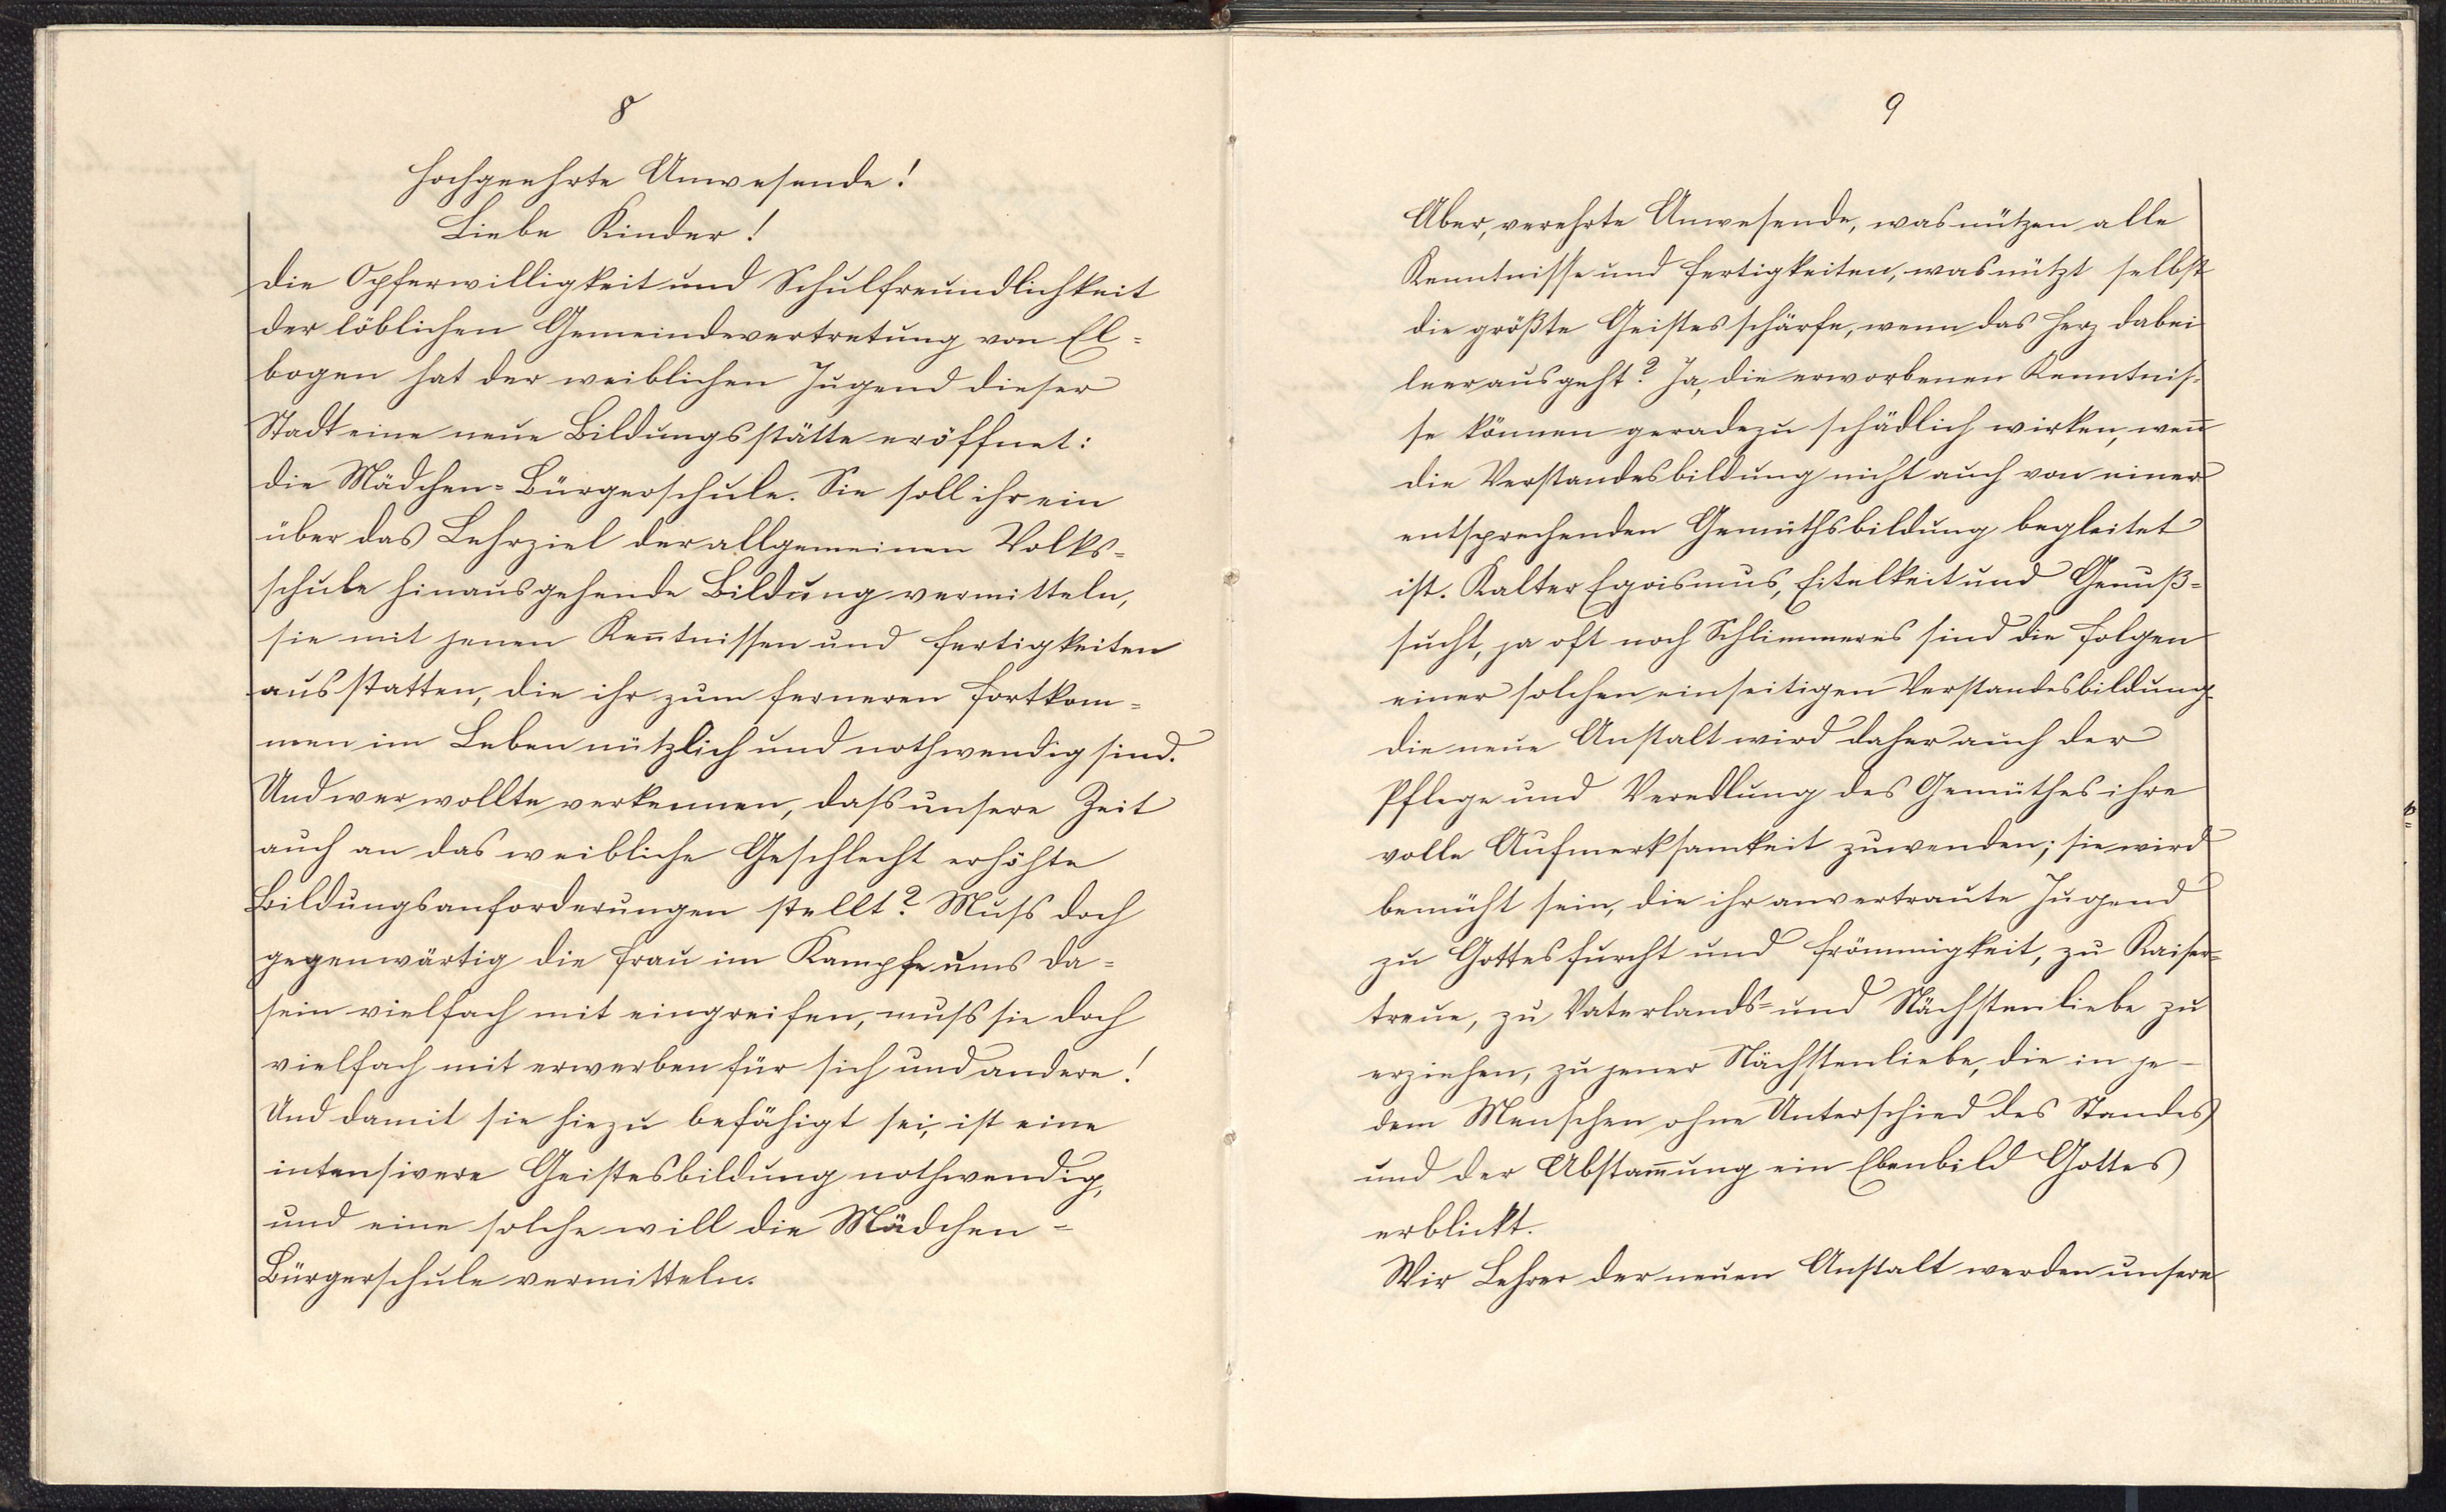 8
Hochgeehrte Anwesende!
Liebe Kinder!
Die Opferwilligkeit und Schulfreundlichkeit
der löblichen Gemeindevertretung von El=
bogen hat der weiblichen Jugend dieser
Stadt eine neue Bildungsstätte eröffnet:
die Mädchen=Bürgerschule. Sie soll ihr ein
über das Lehrziel der allgemeinen Volks=
schule hinausgehende Bildung vermitteln,
sie mit jenen Keñtnissen und Fertigkeiten
ausstatten, die ihr zum ferneren Fortkom=
men im Leben nützlich und nothwendig sind.
Und wer wollte verkennen, dass unsere Zeit
auch an das weibliche Geschlecht erhöhte
Bildungsanforderungen stellt? Muss doch
gegenwärtig die Frau im Kampfe ums Da=
sein vielfach mit eingreifen, muss sie doch
vielfach mit erwerben für sich und andere!
Und damit sie hiezu befähigt sei, ist eine
intensivere Geistesbildung nothwendig,
und eine solche will die Mädchen=
Bürgerschule vermitteln.
9
Aber, verehrte Anwesende, was nützen alle
Kenntnisse und Fertigkeiten, was nützt selbst
die größte Geistesschärfe, wenn das Herz dabei
leer ausgeht? Ja, die erworbenen Kenntnis=
se können geradezu schädlich wirken, weñ
die Verstandesbildung nicht auch von einer
entsprechenden Gemüthsbildung begleitet
ist. Kalter Egoismus, Eitelkeit und Genuß=
sucht, ja oft noch Schlimmeres sind die Folgen
einer solchen einseitigen Verstandesbildung.
Die neue Anstalt wird daher auch der
Pflege und Veredlung des Gemüthes ihre
volle Aufmerksamkeit zuwenden; sie wird
bemüht sein, die ihr anvertraute Jugend
zu Gottesfurcht und Frömmigkeit, zu Kaiser=
treue, zu Vaterlands= und Nächstenliebe zu
erziehen, zu jener Nächstenliebe, die in je-
dem Menschen ohne Unterschied des Standes
und der Abstam̃ung ein Ebenbild Gottes
erblickt.
Wir Lehrer der neuen Anstalt werden unsere